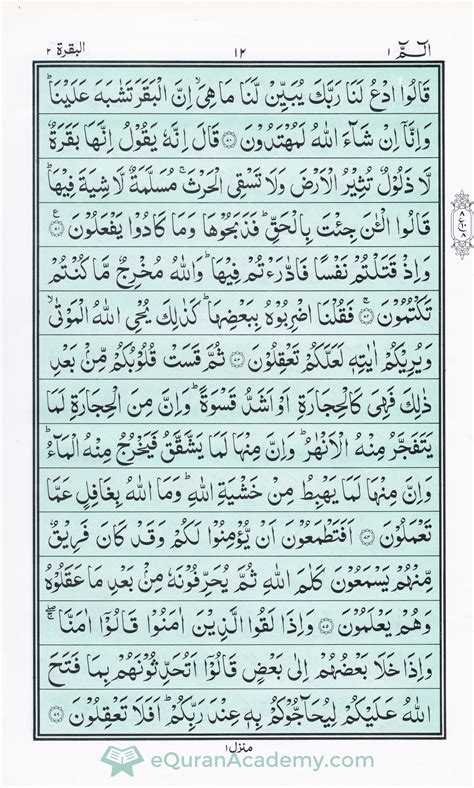 الٓمّٓ ١ ١٢ البقرة ٢
قَالُوا ادْعُ لَنَا رَبَّكَ يُبَيِّنْ لَّنَا مَا هِيَ ۙ اِنَّ الْبَقَرَ تَشٰبَهَ عَلَيْنَا ؕ
وَاِنَّاۤ اِنْ شَآءَ اللّٰهُ لَمُهْتَدُوْنَ ۞ قَالَ اِنَّهٗ يَقُوْلُ اِنَّهَا بَقَرَةٌ
لَّا ذَلُوْلٌ تُثِيْرُ الْاَرْضَ وَلَا تَسْقِى الْحَرْثَ ۚ مُسَلَّمَةٌ لَّا شِيَةَ فِيْهَا ؕ
قَالُوا الْـٰٔنَ جِئْتَ بِالْحَقِّ ؕ فَذَبَحُوْهَا وَمَا كَادُوْا يَفْعَلُوْنَ ۞ ع
وَاِذْ قَتَلْتُمْ نَفْسًا فَادّٰرَءْتُمْ فِيْهَا ؕ وَاللّٰهُ مُخْرِجٌ مَّا كُنْتُمْ
تَكْتُمُوْنَ ۞ ۚ فَقُلْنَا اضْرِبُوْهُ بِبَعْضِهَا ؕ كَذٰلِكَ يُحْىِ اللّٰهُ الْمَوْتٰى ۙ
وَيُرِيْكُمْ اٰيٰتِهٖ لَعَلَّكُمْ تَعْقِلُوْنَ ۞ ثُمَّ قَسَتْ قُلُوْبُكُمْ مِّنْۢ بَعْدِ
ذٰلِكَ فَهِىَ كَالْحِجَارَةِ اَوْ اَشَدُّ قَسْوَةً ؕ وَاِنَّ مِنَ الْحِجَارَةِ لَمَا
يَتَفَجَّرُ مِنْهُ الْاَنْهٰرُ ؕ وَاِنَّ مِنْهَا لَمَا يَشَّقَّقُ فَيَخْرُجُ مِنْهُ الْمَآءُ ؕ
وَاِنَّ مِنْهَا لَمَا يَهْبِطُ مِنْ خَشْيَةِ اللّٰهِ ؕ وَمَا اللّٰهُ بِغَافِلٍ عَمَّا
تَعْمَلُوْنَ ۞ اَفَتَطْمَعُوْنَ اَنْ يُّؤْمِنُوْا لَكُمْ وَقَدْ كَانَ فَرِيْقٌ
مِّنْهُمْ يَسْمَعُوْنَ كَلٰمَ اللّٰهِ ثُمَّ يُحَرِّفُوْنَهٗ مِنْۢ بَعْدِ مَا عَقَلُوْهُ
وَهُمْ يَعْلَمُوْنَ ۞ وَاِذَا لَقُوا الَّذِيْنَ اٰمَنُوْا قَالُوْۤا اٰمَنَّا ۖۚ
وَاِذَا خَلَا بَعْضُهُمْ اِلٰى بَعْضٍ قَالُوْۤا اَتُحَدِّثُوْنَهُمْ بِمَا فَتَحَ
اللّٰهُ عَلَيْكُمْ لِيُحَآجُّوْكُمْ بِهٖ عِنْدَ رَبِّكُمْ ؕ اَفَلَا تَعْقِلُوْنَ ۞
منزل ١
eQuranAcademy.com